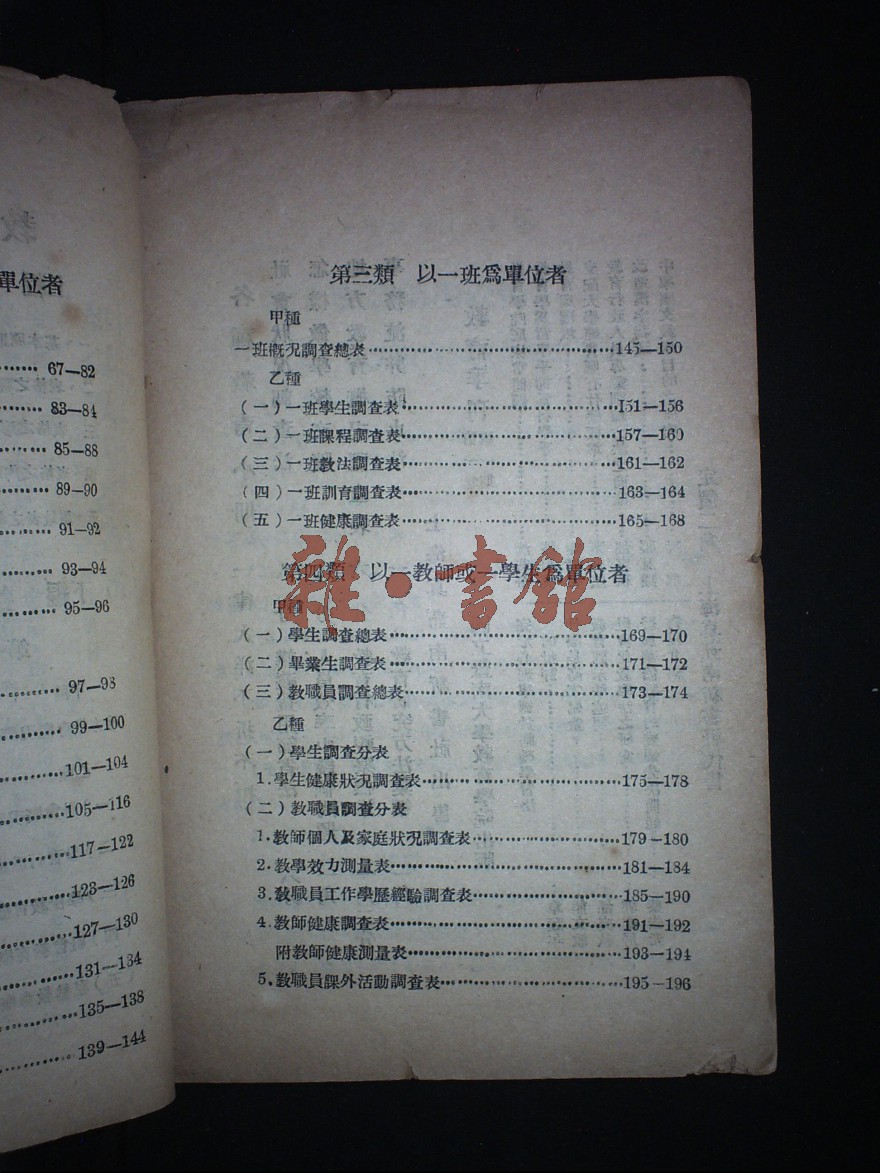 單位者
67—82
83—84
85—88
89—90
91—92
93—94
95—96
97—98
99—100
101—104
105—116
117—122
123—126
127—130
131—134
135—138
139—144
第三類 以一班爲單位者
甲種
一班概况調查總表 145—150
乙種
（一）一班學生調查表 151—156
（二）一班課程調查表 157—160
（三）一班教法調查表 161—162
（四）一班訓育調查表 163—164
（五）一班健康調查表 165—168
第四類 以一教師或一學生爲單位者
甲種
（一）學生調查總表 169—170
（二）畢業生調查表 171—172
（三）教職員調查總表 173—174
乙種
（一）學生調查分表
1.學生健康狀况調查表 175—178
（二）教職員調查分表
1.教師個人及家庭狀况調查表 179—180
2.教學效力測量表 181—184
3.教職員工作學歷經驗調查表 185—190
4.教師健康調查表 191—192
附教師健康測量表 193—194
5.教職員課外活動調查表 195-196
雜·書館